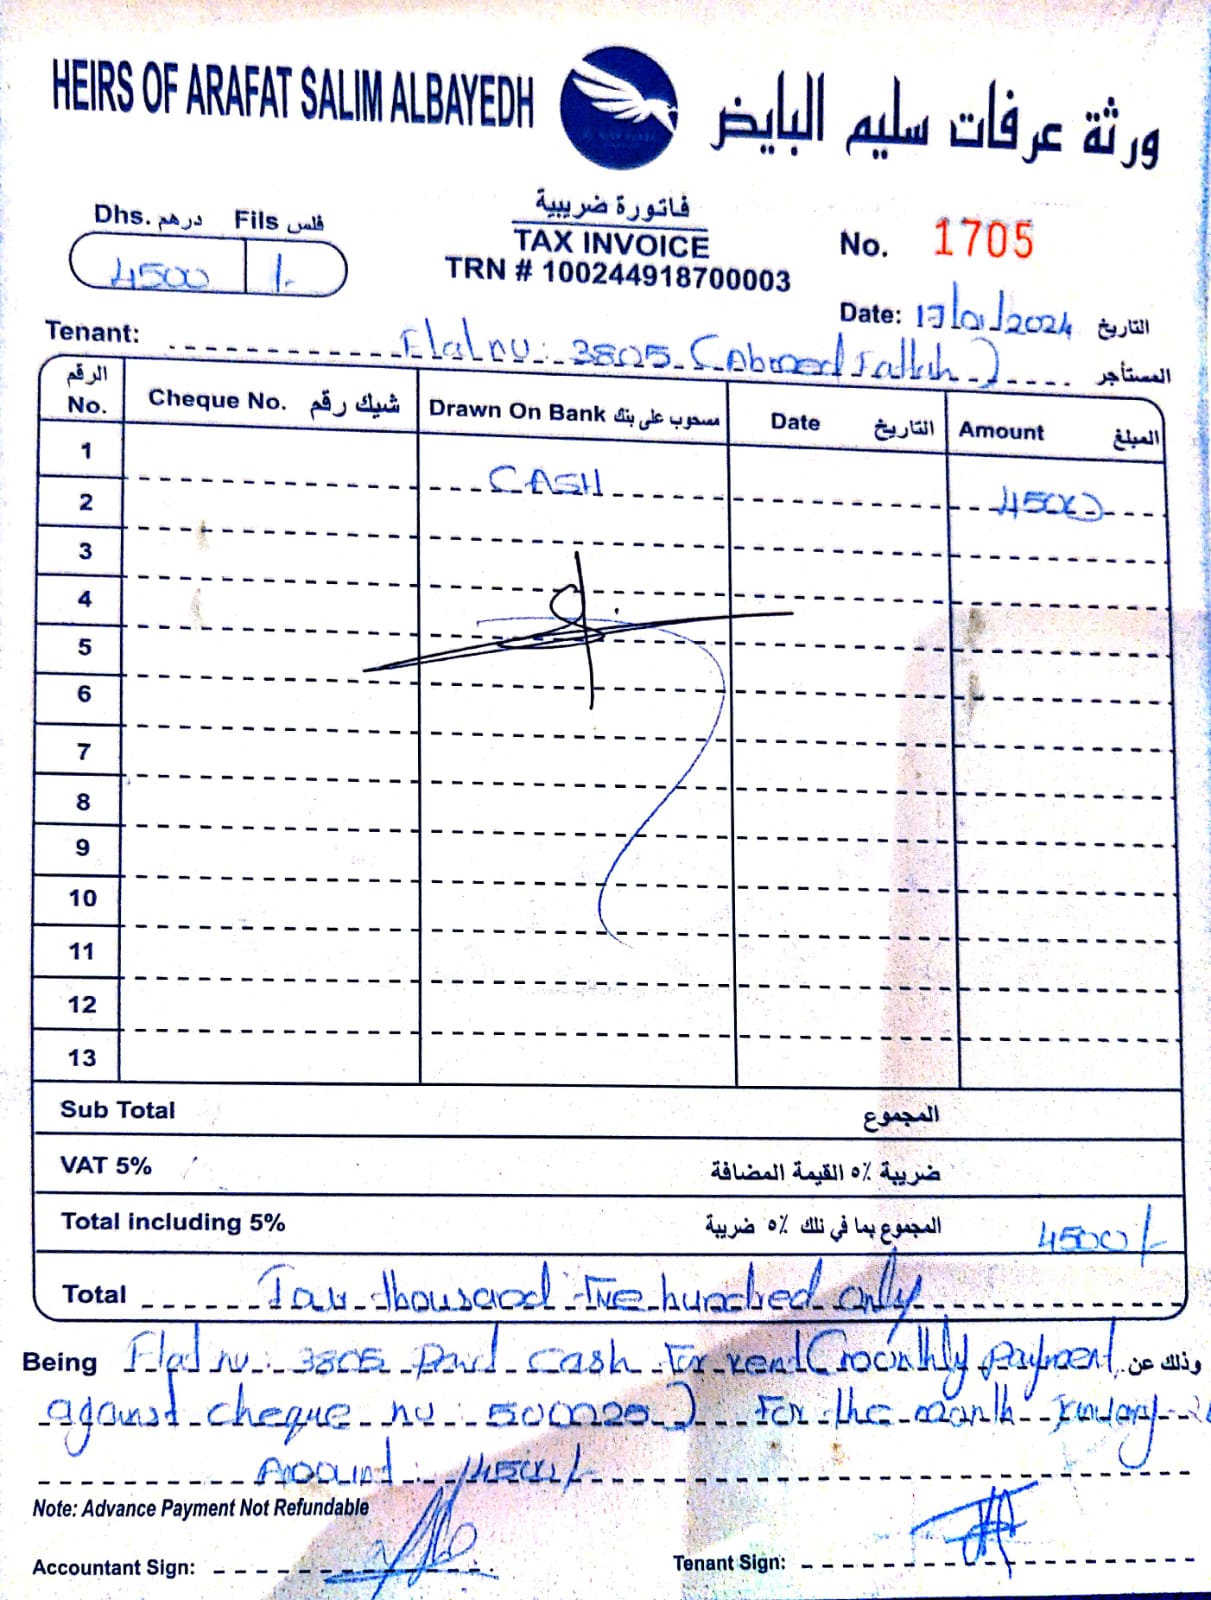 HEIRS OF ARAFAT SALIM ALBAYEDH
ورثة عرفات سليم البايض
Dhs. درهم Fils فلس
4500 /-
فاتورة ضريبية
TAX INVOICE
TRN # 100244918700003
No. 1705
Date: 17/01/2024 التاريخ
Tenant: Flat no: 3805 (Ahmed Fallah) المستأجر
الرقم No. Cheque No. شيك رقم Drawn On Bank مسحوب على بنك Date التاريخ Amount المبلغ
1
2 CASH 4500
3
4
5
6
7
8
9
10
11
12
13
Sub Total المجموع
VAT 5% ضريبة ٥٪ القيمة المضافة
Total including 5% المجموع بما في نلك ٥٪ ضريبة 4500/-
Total Four thousand Five hundred only
Being Flat no: 3805 Paid cash For rent (monthly payment وذلك عن
against cheque no: 500025) For the month January
Amount: 4500/-
Note: Advance Payment Not Refundable
Accountant Sign: Tenant Sign: